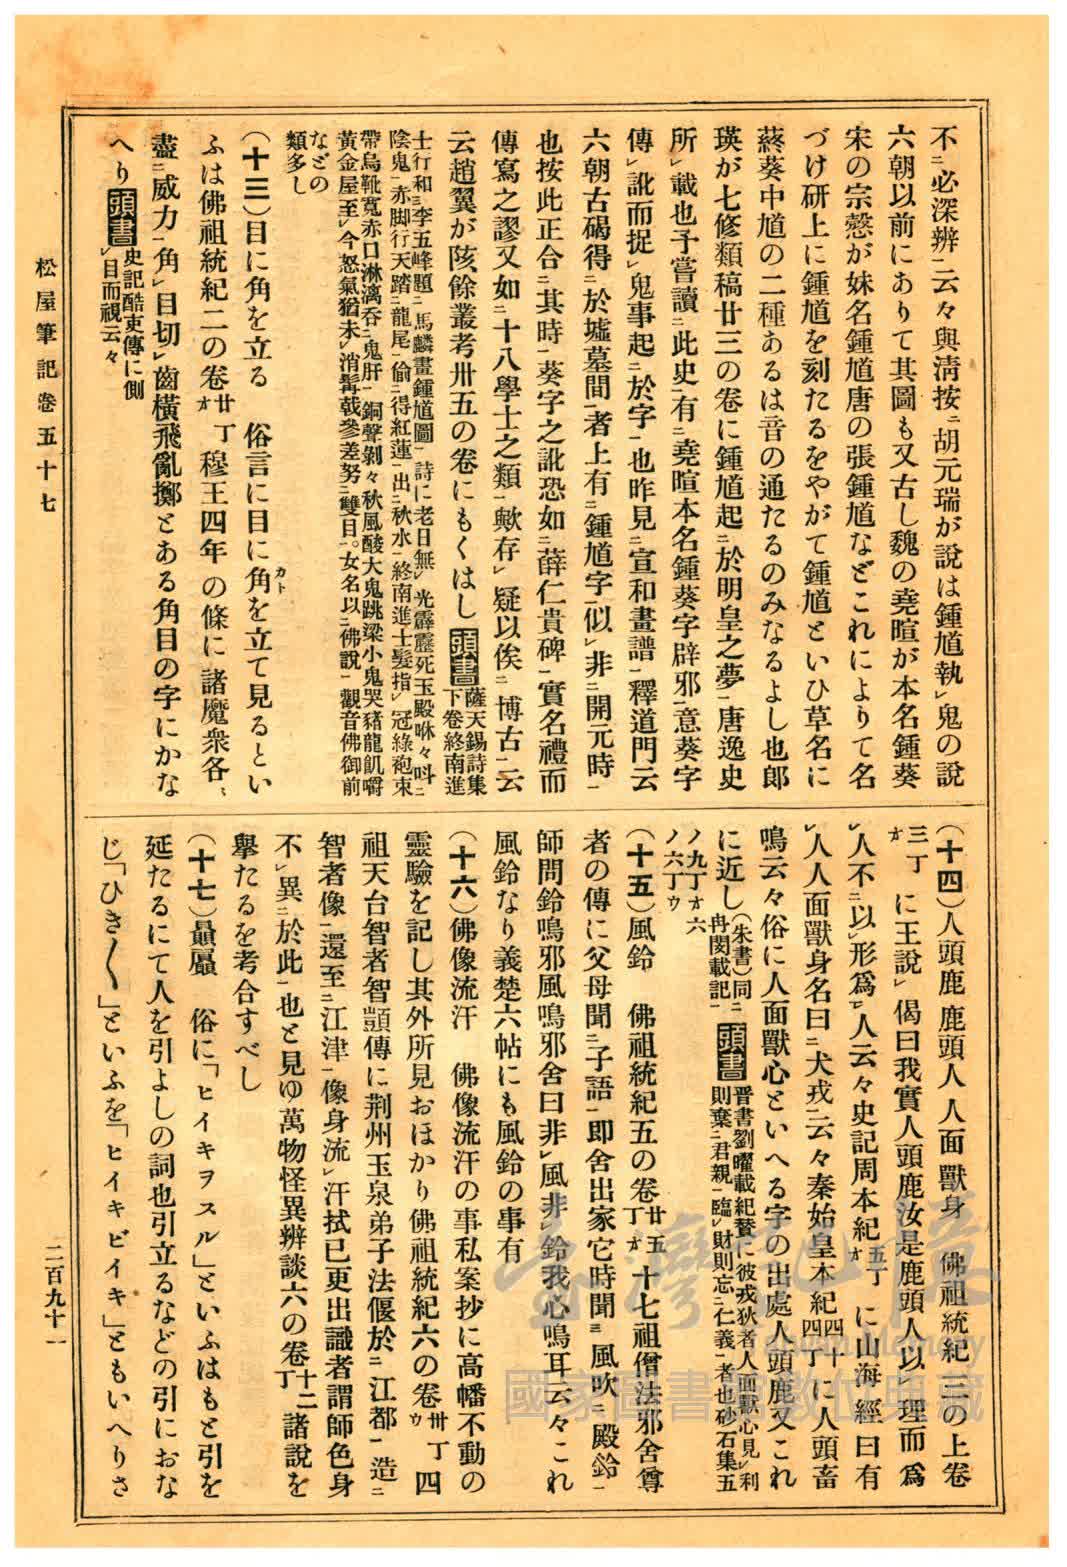 不ニ必深辨一云々與淸按ニ胡元瑞が說は鍾馗執レ鬼の說
六朝以前にありて其圖も又古し魏の堯暄が本名鍾葵
宋の宗慤が妹名鍾馗唐の張鍾馗などこれによりて名
づけ硏上に鍾馗を刻たるをやがて鍾馗といひ草名に
蔠葵中馗の二種あるは音の通たるのみなるよし也郎
瑛が七修類稿廿三の卷に鍾馗起ニ於明皇之夢一唐逸史
所レ載也予嘗讀ニ此史一有ニ堯暄本名鍾葵字辟邪一意葵字
傳レ訛而捉レ鬼事起ニ於字一也昨見ニ宣和畫譜一釋道門云
六朝古碣得ニ於墟墓間一者上有ニ鍾馗字一似レ非ニ開元時一
也按此正合ニ其時一葵字之訛恐如ニ薛仁貴碑一實名禮而
傳寫之謬又如ニ十八學士之類一歟存レ疑以俟ニ博古一云
云趙翼が陔餘叢考卅五の卷にもくはし頭書薩天錫詩集
下卷終南進
士行和ニ李五峰題ニ馬麟畫鍾馗圖一詩に老日無レ光霹靂死玉殿咻々叫ニ
陰鬼一赤脚行天踏ニ龍尾一偷ニ得紅蓮一出ニ秋水一終南進士髮指レ冠綠袍束
帶烏靴寬赤口淋漓呑ニ鬼肝一銅聲剝々秋風酸大鬼跳梁小鬼哭豬龍飢嚼
黃金屋至レ今怒氣猶未レ消髯戟參差努ニ雙目。女名以ニ佛說一觀音佛御前
などの
類多し
(十三)目に角を立る　俗言に目に角カトを立て見るとい
ふは佛祖統紀二の卷廿丁オ穆王四年の條に諸魔衆各々
盡ニ威力一角レ目切レ齒橫飛亂擲とある角目の字にかな
へり頭書史記酷吏傳に側
レ目而視云々
(十四)人頭鹿鹿頭人人面獸身　佛祖統紀三の上卷
三丁オに王說レ偈曰我實人頭鹿汝是鹿頭人以レ理而爲
レ人不ニ以レ形爲一レ人云々史記周本紀五丁オに山海經曰有
レ人人面獸身名曰ニ犬戎一云々秦始皇本紀四十四丁に人頭畜
鳴云々俗に人面獸心といへる字の出處人頭鹿又これ
に近し(朱書)同ニ
冉閔載記一頭書晉書劉曜載紀贊に彼戎狄者人面獸心見レ利
則棄ニ君親一臨レ財則忘ニ仁義一者也砂石集五
ノ九丁オ六
ノ六丁ウ
(十五)風鈴　佛祖統紀五の卷廿五丁オ十七祖僧法邪舍尊
者の傳に父母聞ニ子語一卽舍出家它時聞三風吹ニ殿鈴一
師問鈴鳴邪風鳴邪舍曰非レ風非レ鈴我心鳴耳云々これ
風鈴なり義楚六帖にも風鈴の事有
(十六)佛像流汗　佛像流汗の事私案抄に高幡不動の
靈驗を記し其外所見おほかり佛祖統紀六の卷卅丁ウ四
祖天台智者智顗傳に荆州玉泉弟子法偃於ニ江都一造ニ
智者像一還至ニ江津一像身流レ汗拭已更出識者謂師色身
不レ異ニ於此一也と見ゆ萬物怪異辨談六の卷十二丁諸說を
擧たるを考合すべし
(十七)贔屭　俗に「ヒイキヲスル」といふはもと引を
延たるにて人を引よしの詞也引立るなどの引におな
じ「ひき〱」といふを「ヒイキビイキ」ともいへりさ
松屋筆記卷五十七
二百九十一
臺灣記憶
Taiwan Memory
國家圖書館數位典藏